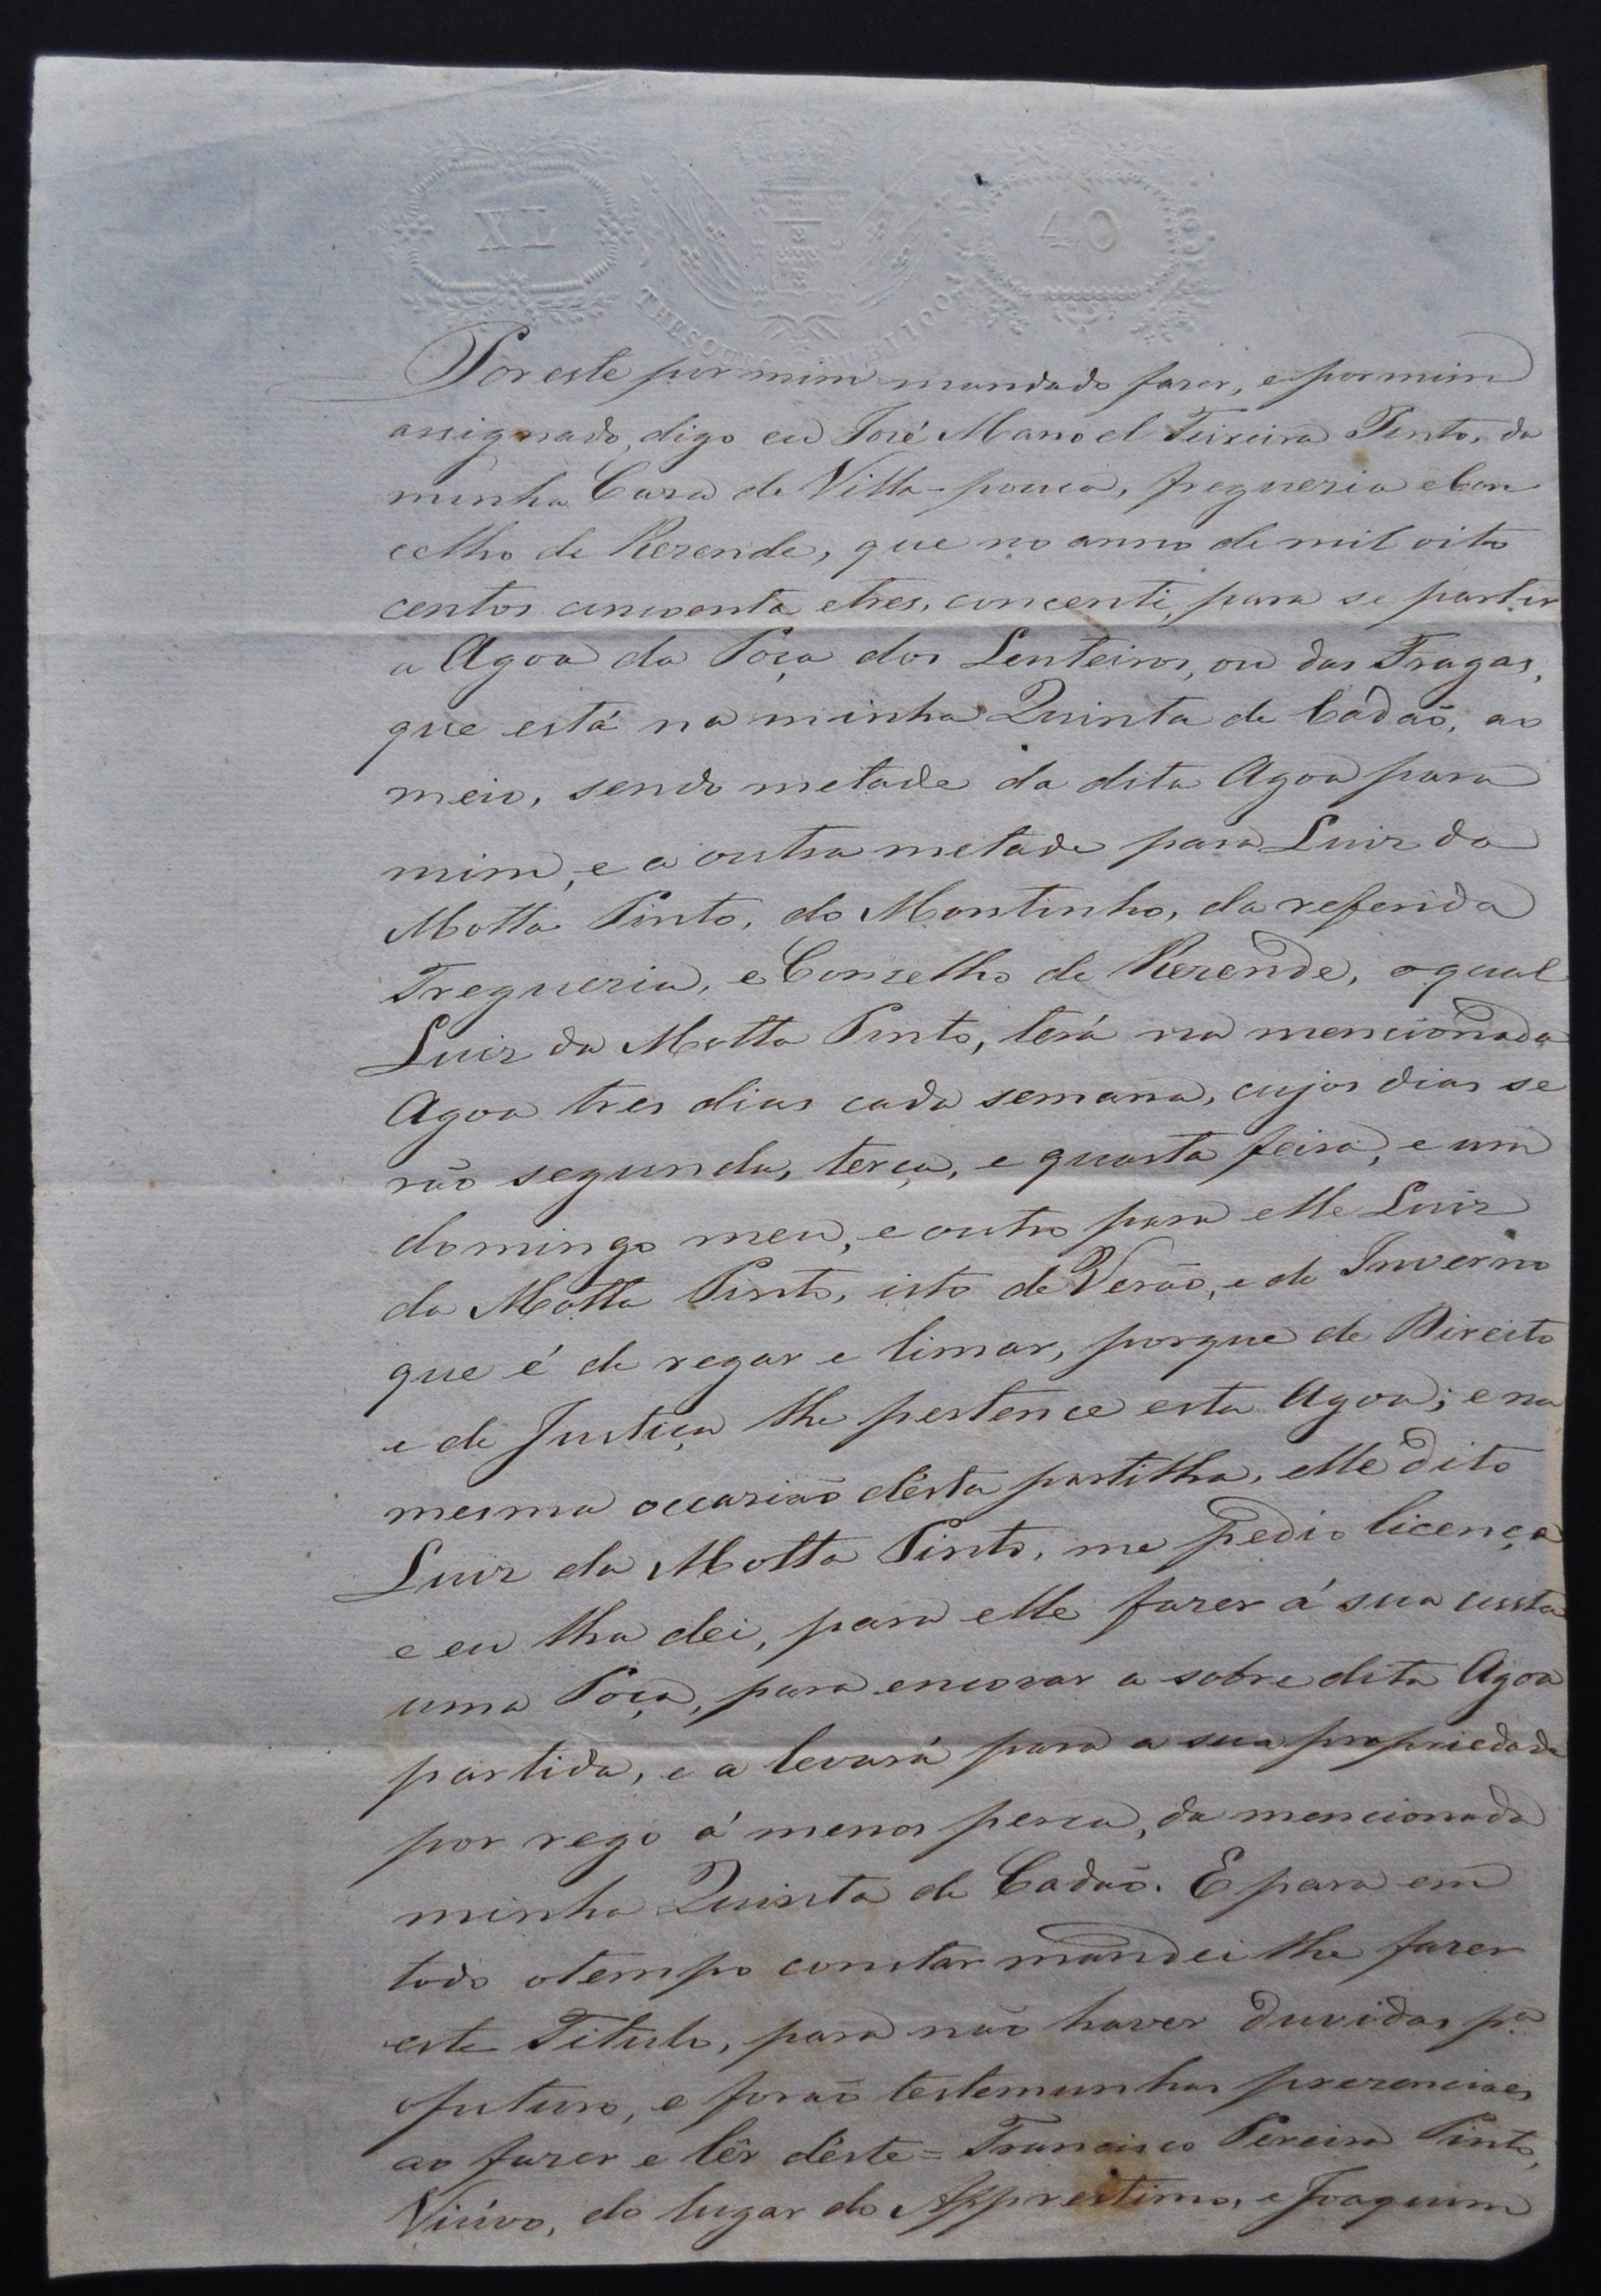 XL
THESOURO PUBLICO
40
Por este por mim mandado fazer, e por mim
assignado, digo eu José Manoel Teixeira Pinto, da
minha Caza de Villa-pouca, freguezia e Con
celho de Rezende, que no anno de mil oito
centos cincoenta e tres, concenti, para se partir
a Agoa da Poça dos Lenteiros, ou das Fragas,
que está na minha Quinta de Cadaõ, ao
meio, sendo metade da dita Agoa para
mim, e a outra metade para Luiz da
Motta Pinto, do Montinho, da referida
Freguezia, e Conselho de Rezende, o qual
Luiz da Motta Pinto, terá na mencionada
Agoa tres dias cada semana, cujos dias se
rão segunda, terça, e quarta feira, e um
domingo meu, e outro para elle Luiz
da Motta Pinto, isto de Verão, e de Inverno
que é de regar e limar, porque de Direito
e de Justiça lhe pertence esta Agoa; e na
mesma occazião désta partilha, elle dito
Luiz da Motta Pinto, me pedio licença
e eu lha dei, para elle fazer á sua custa
uma Poça, para encovar a sobre dita Agoa
partida, e a levará para a sua propriedade
por rego á menos perca, da mencionada
minha Quinta de Cadaõ. E para em
todo o tempo constar mandei lhe fazer
este Titulo, para não haver duvidas pª
o futuro, e foraõ testemunhas prezenciaes
ao fazer e lêr déste = Francisco Pereira Pinto,
Viúvo, do lugar do Apprestimo, e Joaquim